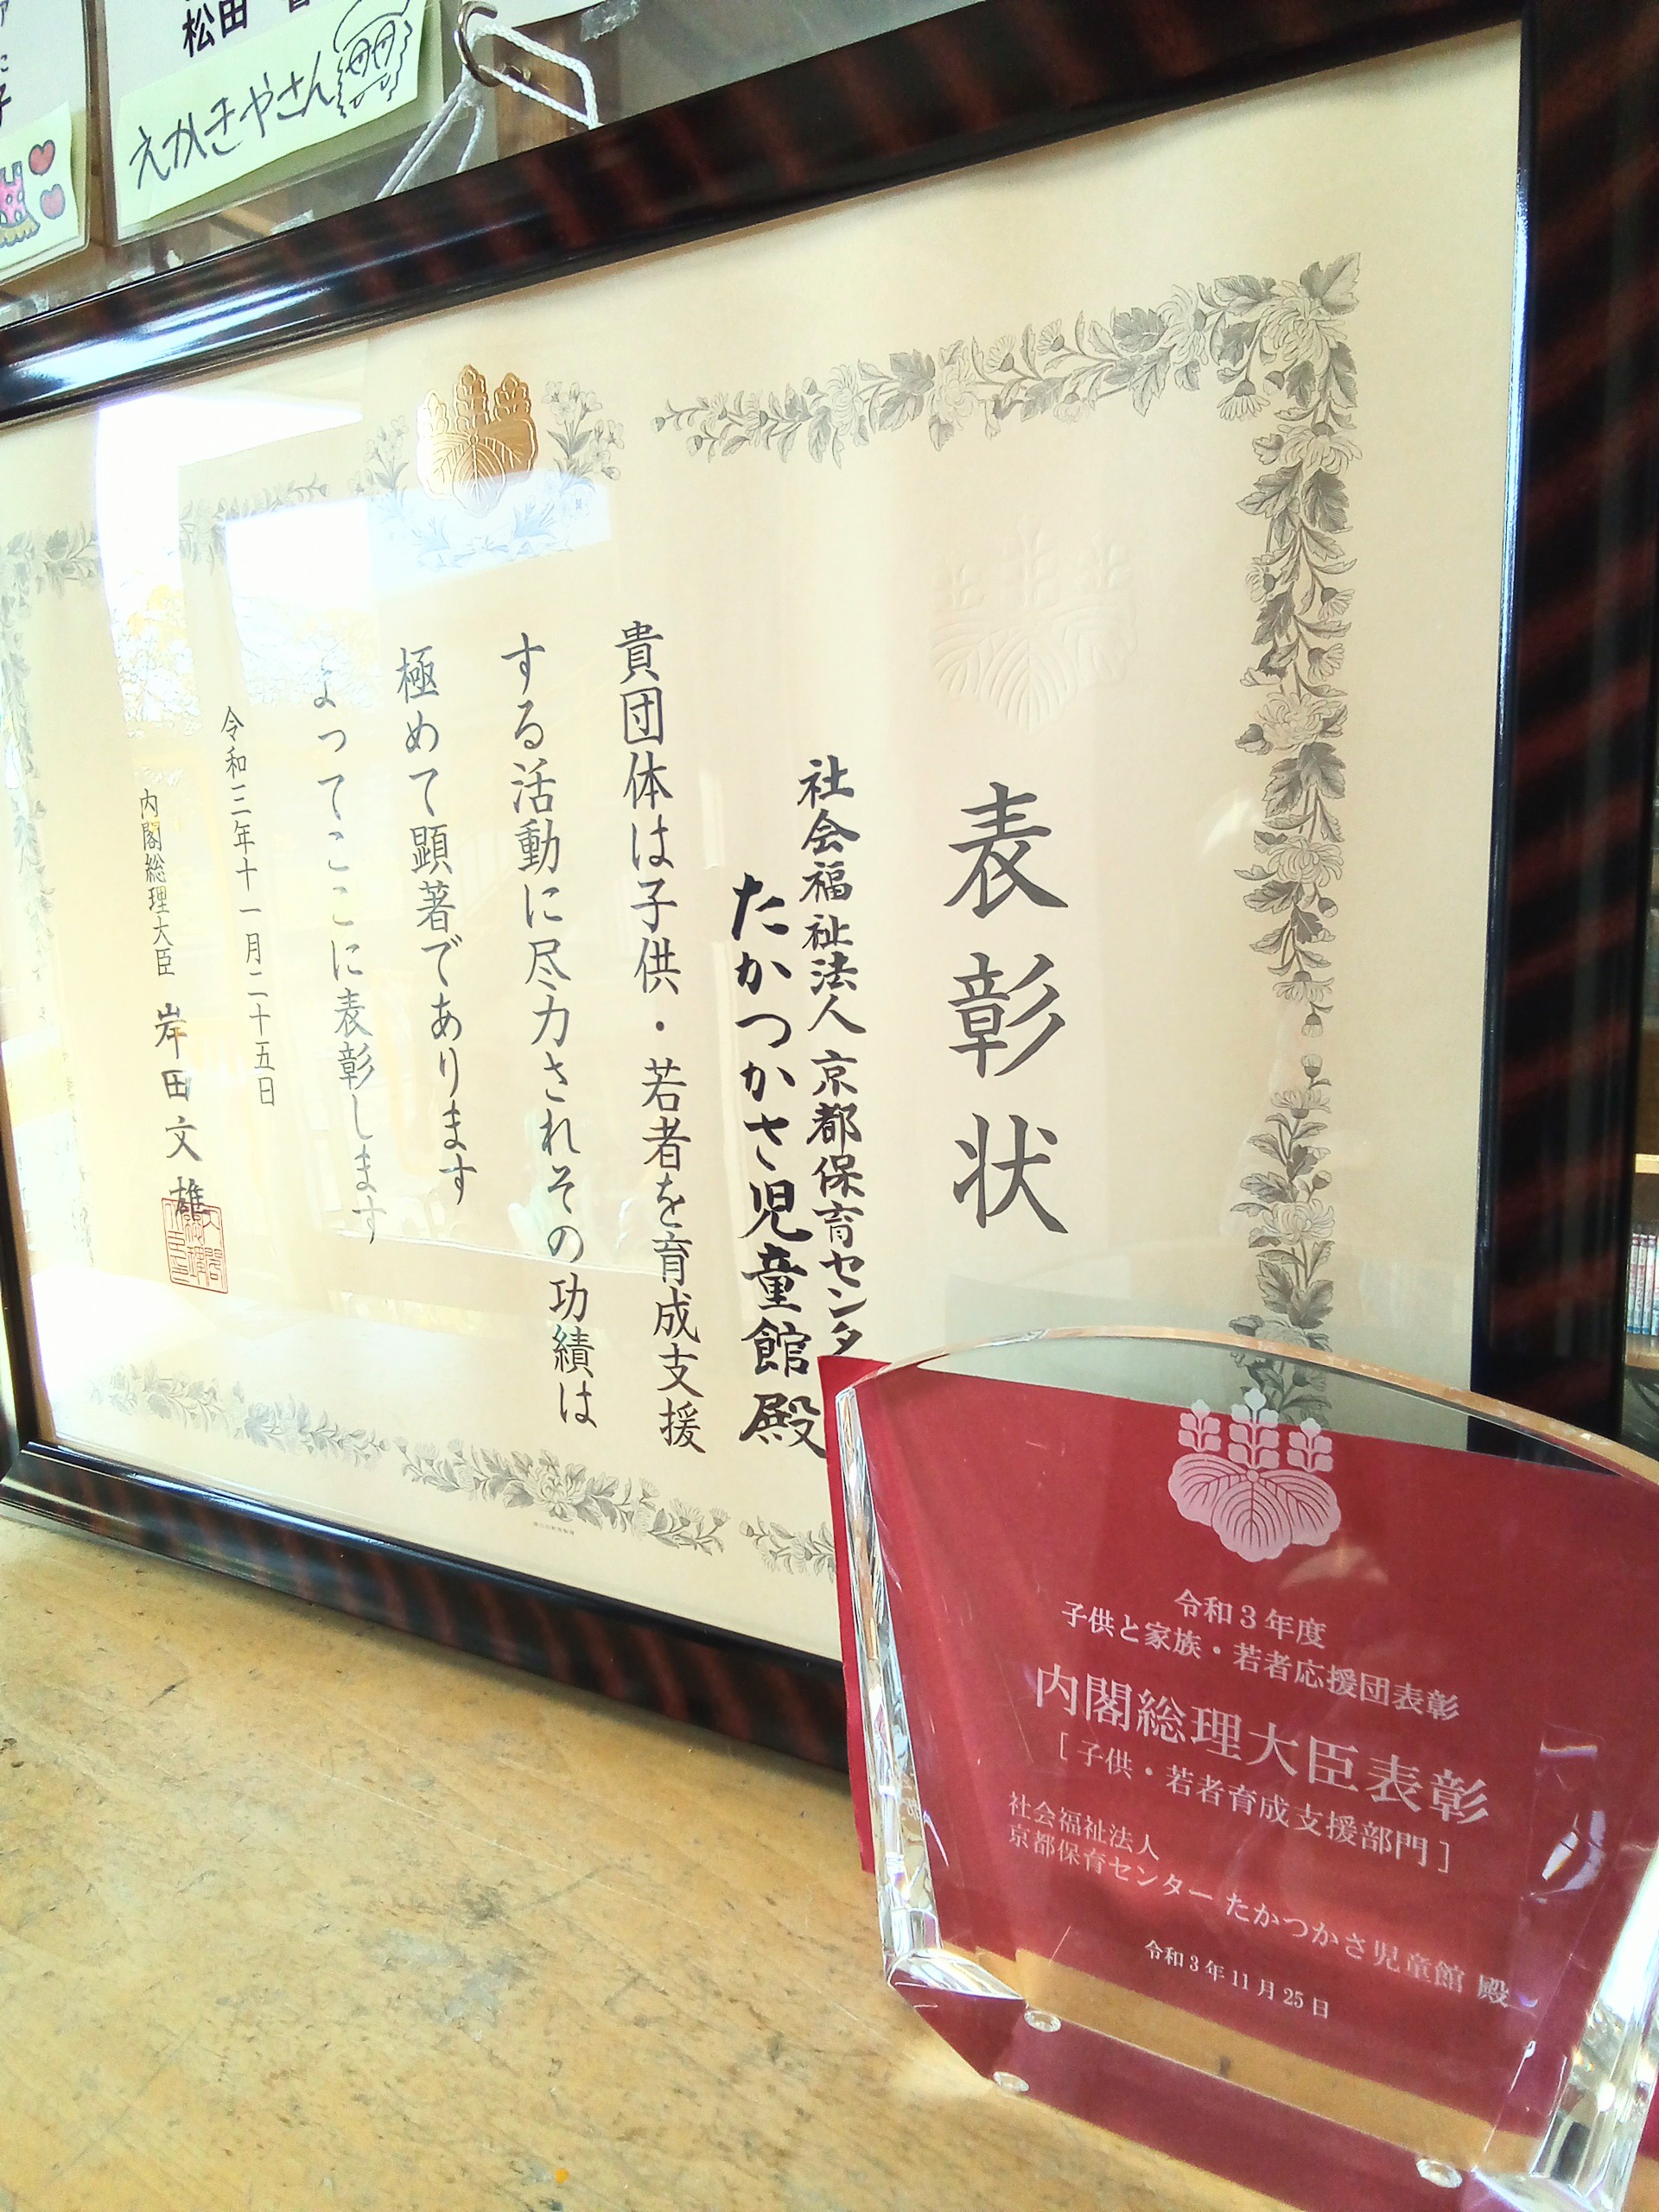 松田
えかきやさん
表彰状
社会福祉法人 京都保育センタ
たかつかさ児童館 殿
貴団体は子供・若者を育成支援
する活動に尽力されその功績は
極めて顕著であります
よってここに表彰します
令和三年十一月二十五日
内閣総理大臣 岸田文雄
令和3年度
子供と家族・若者応援団表彰
内閣総理大臣表彰
[子供・若者育成支援部門]
社会福祉法人
京都保育センター たかつかさ児童館 殿
令和3年11月25日